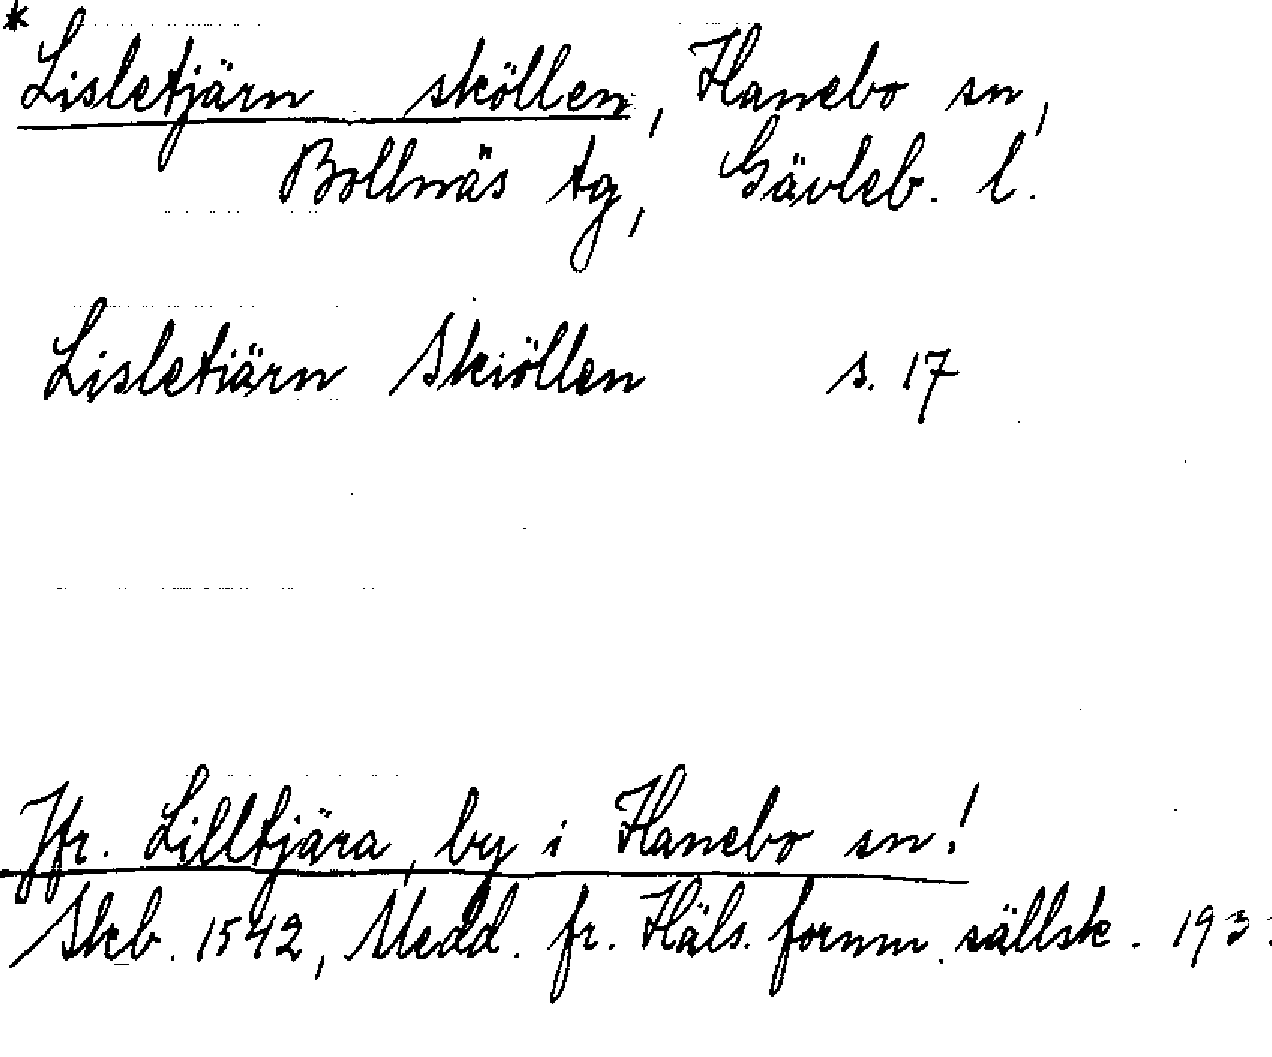 * Lisletjärn sköllen, Hanebo sn,
Bollnäs tg, Gävleb. l.
Lisletiärn Skiöllen s. 17
Jfr. Lilltjära, by i Hanebo sn!
Skb. 1542, Medd. fr. Häls. fornm. sällsk. 193